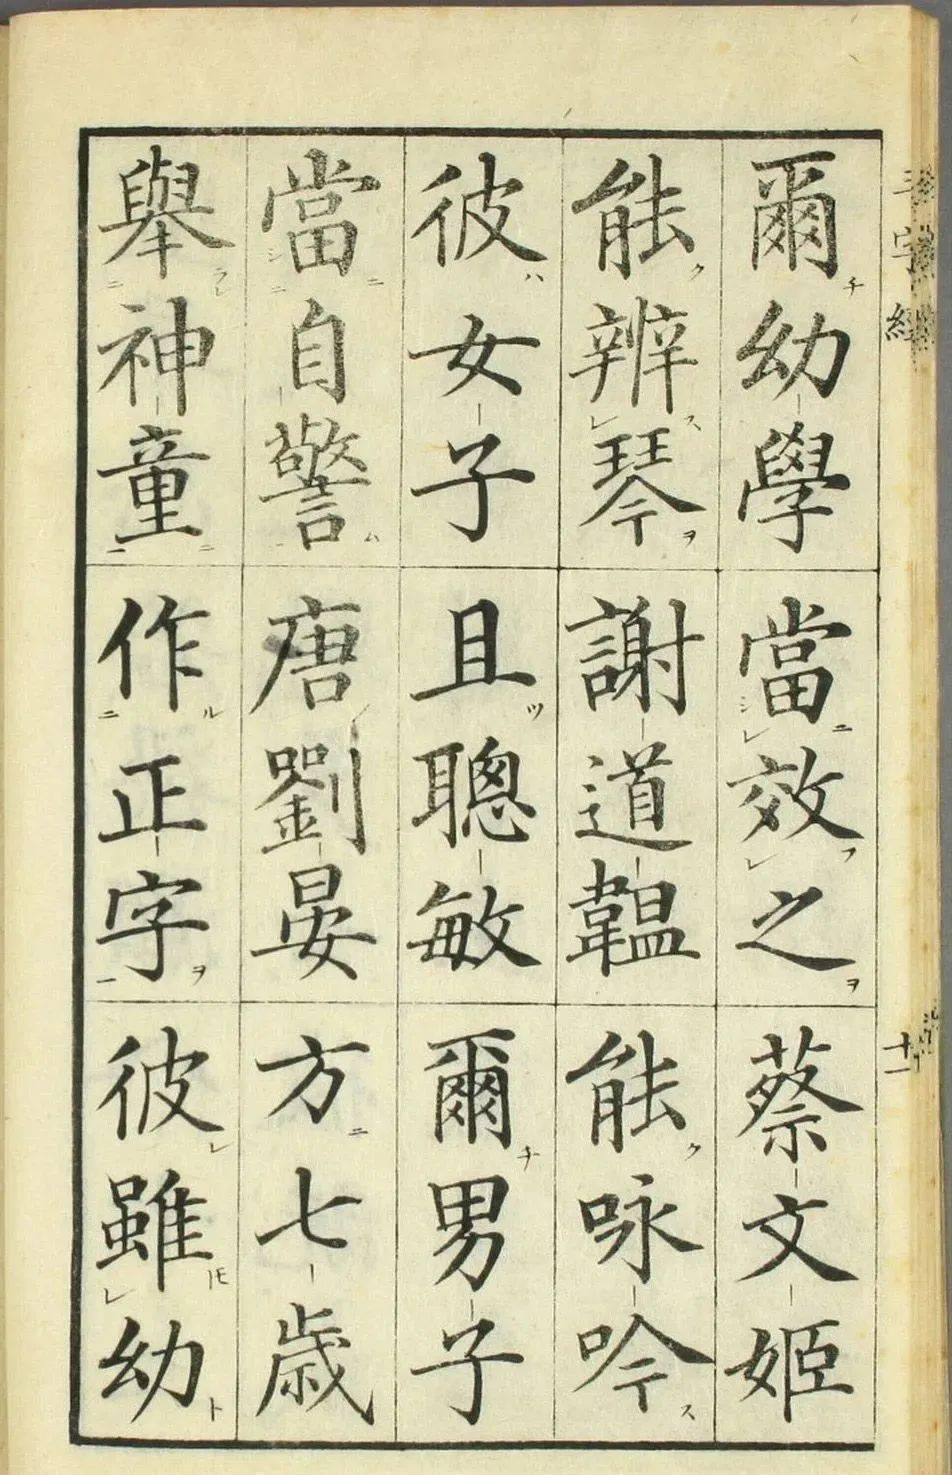 爾幼學當效之蔡文姬
能辨琴謝道韞能咏吟
彼女子且聰敏爾男子
當自警唐劉晏方七歲
舉神童作正字彼雖幼
三字經
十一